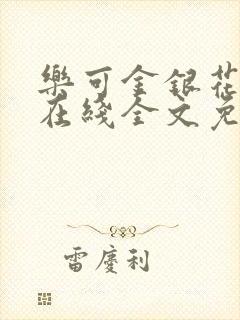 樂可金銀花
在綫全文免
雷慶利